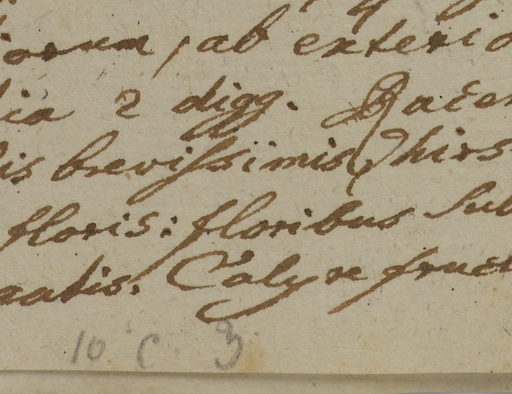 iorum, ab exterio
lia 2 digg. Racem
lis brevissimis, hirs
floris: floribus sub
eatis. Calyx fruct
10 C 3